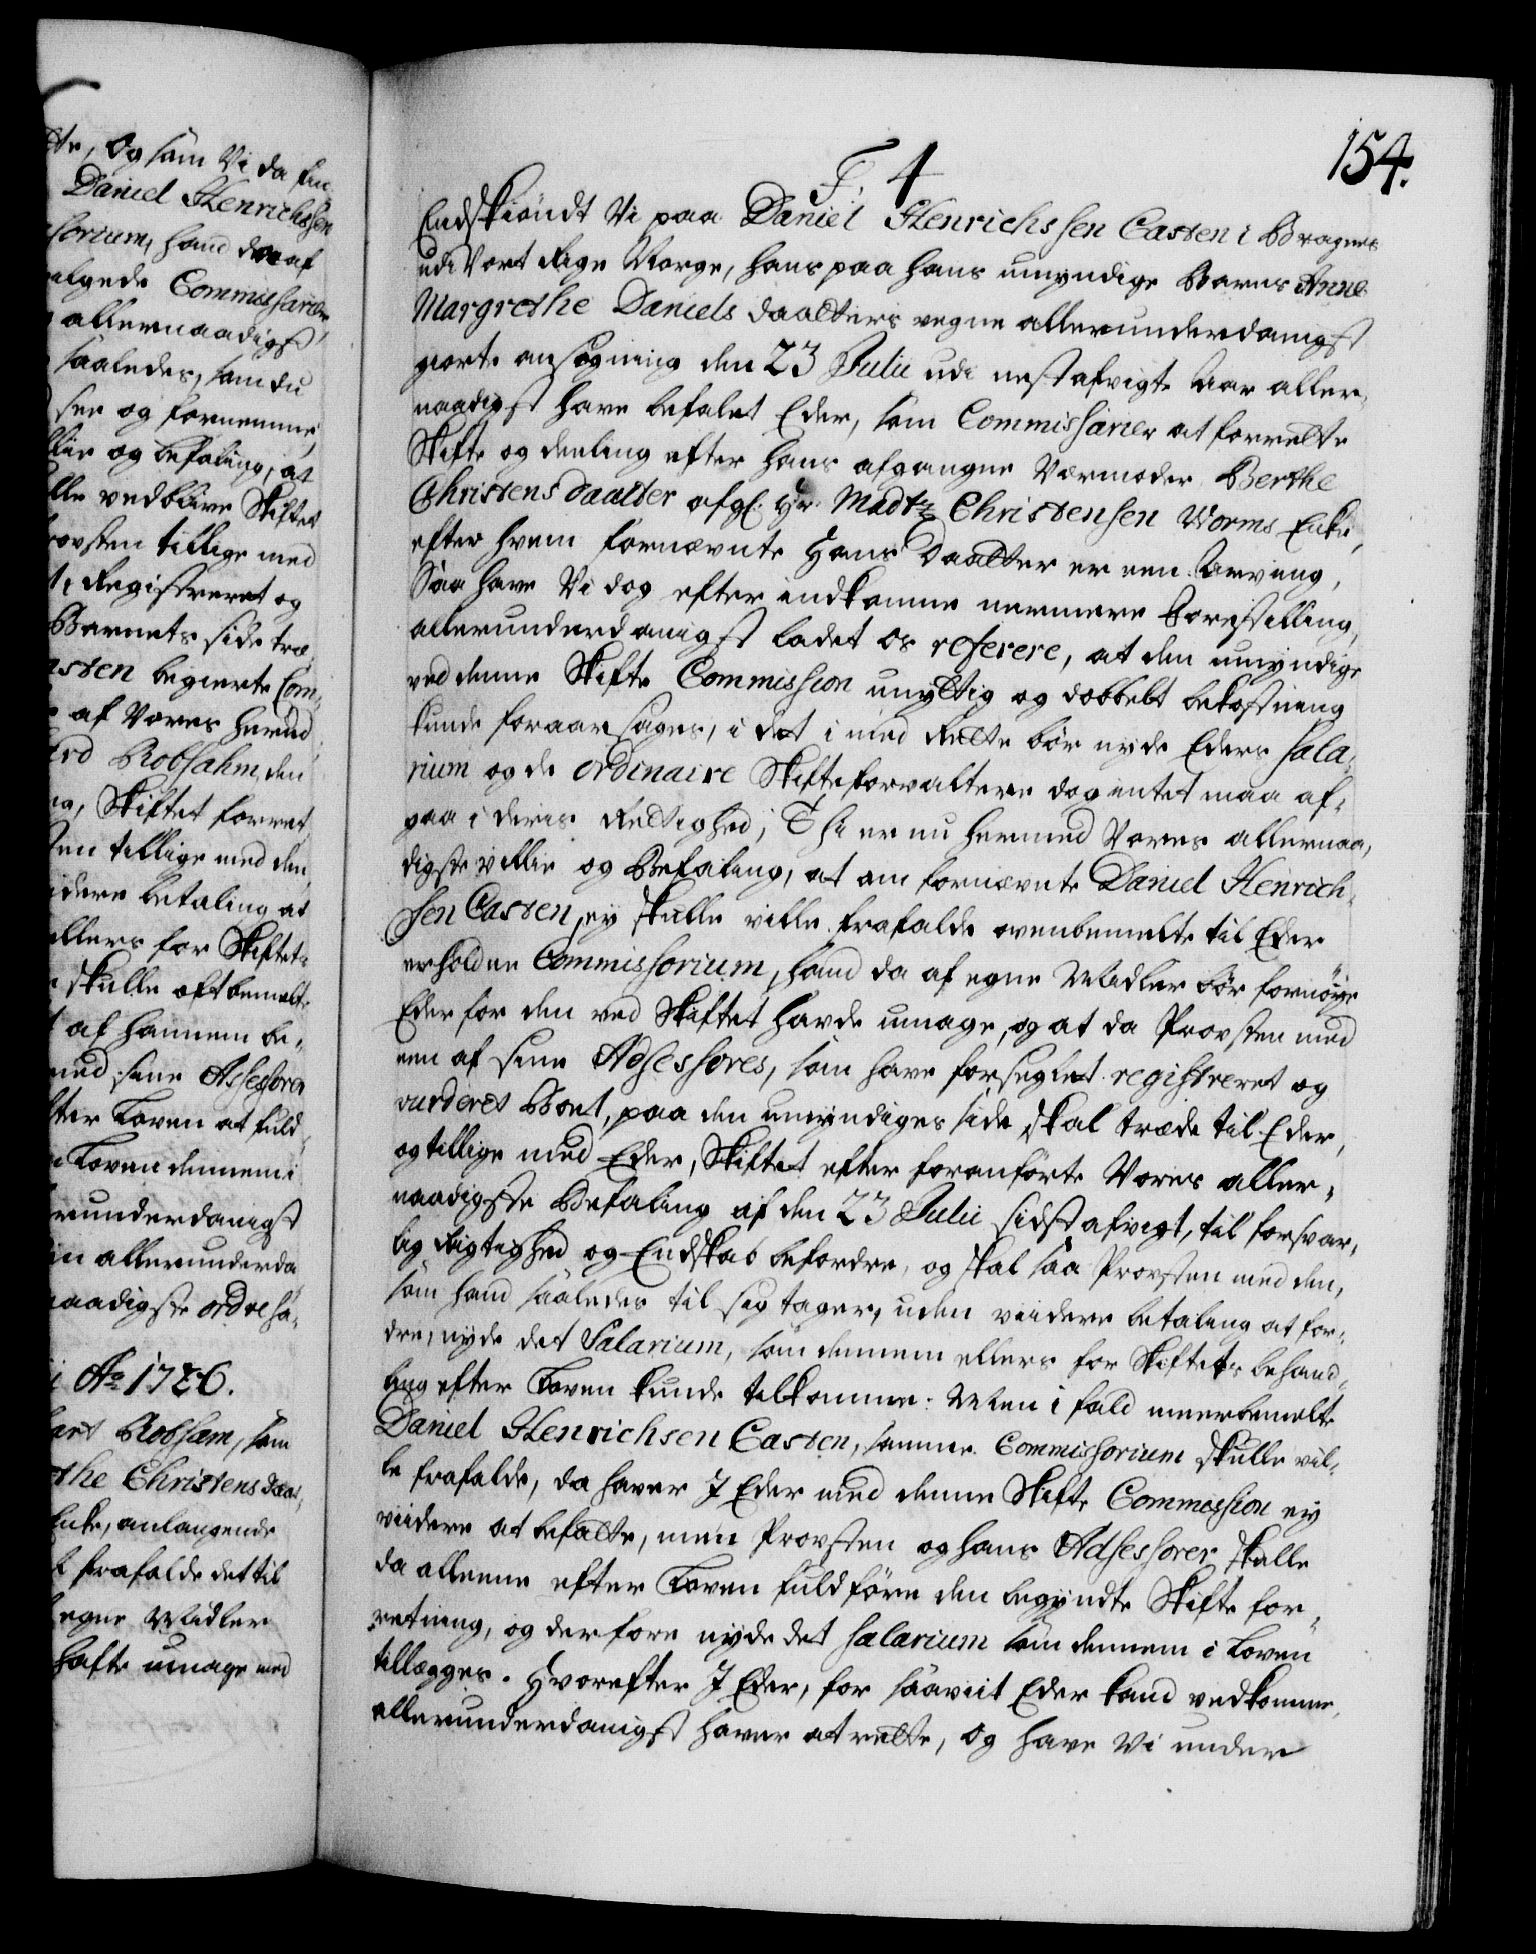 tte, Og som Vi da fin¬
Daniel Henrichssen
sorium, hand da af
algede Commissarier
allernaadigst
saaledes, som du
see og fornemme
llie og befaling, at
lle vedblive Skiftet
rovsten tillige med
t, Registreret og
Barnets side træ¬
asten begierte Com¬
af Vores herud
erd Robsahm, den
Skiftet forret
ten tillige med den
videre betaling at
ellers for Skiftets
skulle oftbemelte
af hannem be¬
med sine Assessorer
fter Loven at fuld¬
Loven dennem i
runderdanigst
in allerunderda
naadigste ordre ha¬
Ao 1726.
art Robsam, som
the Christensdaat¬
Enke, anlangende
frafalde det til
egne Midler
hafte umage med
154.
F. 4
Endskiöndt Vi paa Daniel Henrichssen Casten i Bragnes
udi Vort Rige Norge, hans paa hans umyndige Barns Anne
Margrethe Daniels Daatters vegne allerunderdanigst
giorte ansögning den 23 Julii udi nestafvigte Aar aller¬
naadigst have befalet Eder, som Commissarier at forrette
Skifte og deeling efter hans afgangne Vermoder Berthe
Christens Daatter afgl. Hr. Madtz Christensen Worms Enke,
efter hvem fornævnte Hans Daatter er een Arving,
Saa have Vi dog efter indkomne nermere Forestilling,
allerunderdanigst ladet os referere, at den umyndige
ved denne Skifte Commission unyttig og dobbelt bekostning
kunde foraarsages, i det i med Rette bör nyde Eders sala¬
rium og de ordinaire Skifteforvaltere dog intet maa af¬
gaa i deris Rettighed; Thi er nu hermed Vores allernaa¬
digste villie og Befaling, at om fornævnte Daniel Henrich¬
sen Casten, ey skulle ville frafalde ovenbemelte til Eder
erholdne Commissorium, hand da af egne Midler bör fornöye
Eder for den ved Skiftet havde umage, og at da Provsten med
een af sine Adsessores, som have forseglet registreret og
vurderet Boet, paa den umyndiges side skal træde til Eder,
og tillige med Eder, Skiftet efter foranförte Vores aller¬
naadigste Befaling af den 23 Julii sidst afvigt, til forsvar¬
lig Rigtighed og Endskab befordre, og skal saa Provsten med den,
som hand saaledes til sig tager, uden viidere betaling at for¬
dre, nyde det Salarium, som dennem ellers for Skiftets behand¬
ling efter Loven kunde tilkomme: Men i fald meerbemelte
Daniel Henrichsen Casten, samme Commissorium skulle vil¬
le frafalde, da haver I Eder med denne Skifte Commission ey
viidere at befatte, men Provsten og hans Adsessorer skulle
da alleene efter Loven fuldföre den begyndte Skifte for¬
retning, og derfore nyde det salarium som dennem i Loven
tillægges. Hvorefter I Eder, for saaviit Eder kand vedkomme,
allerunderdanigst haver at rette, og have Vi under